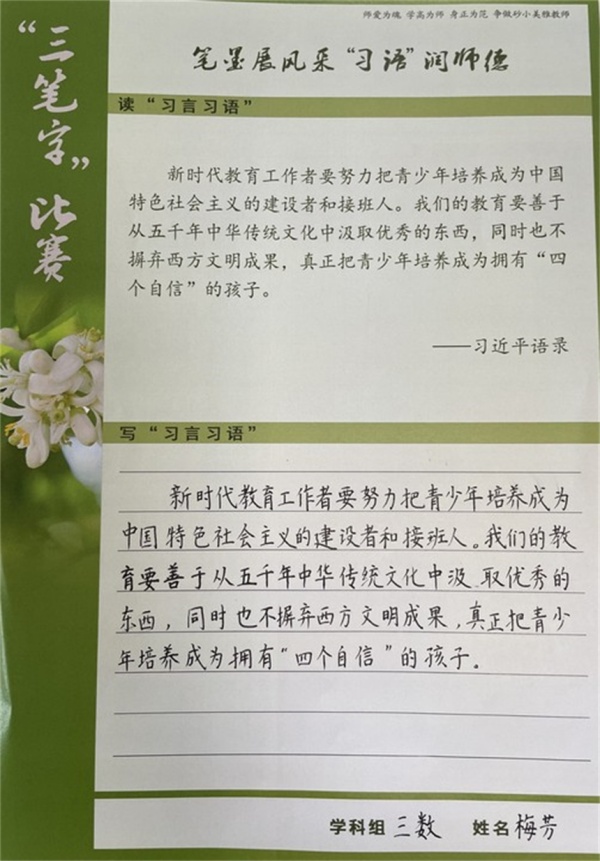 师爱为魂 学高为师 身正为范 争做砂小美雅教师
“三笔字”比赛
笔墨展风采“习语”润师德
读“习言习语”
新时代教育工作者要努力把青少年培养成为中国
特色社会主义的建设者和接班人。我们的教育要善于
从五千年中华传统文化中汲取优秀的东西，同时也不
摒弃西方文明成果，真正把青少年培养成为拥有“四
个自信”的孩子。
——习近平语录
写“习言习语”
新时代教育工作者要努力把青少年培养成为
中国特色社会主义的建设者和接班人。我们的教
育要善于从五千年中华传统文化中汲取优秀的
东西，同时也不摒弃西方文明成果，真正把青少
年培养成为拥有“四个自信”的孩子。
学科组 三数 姓名 梅芳